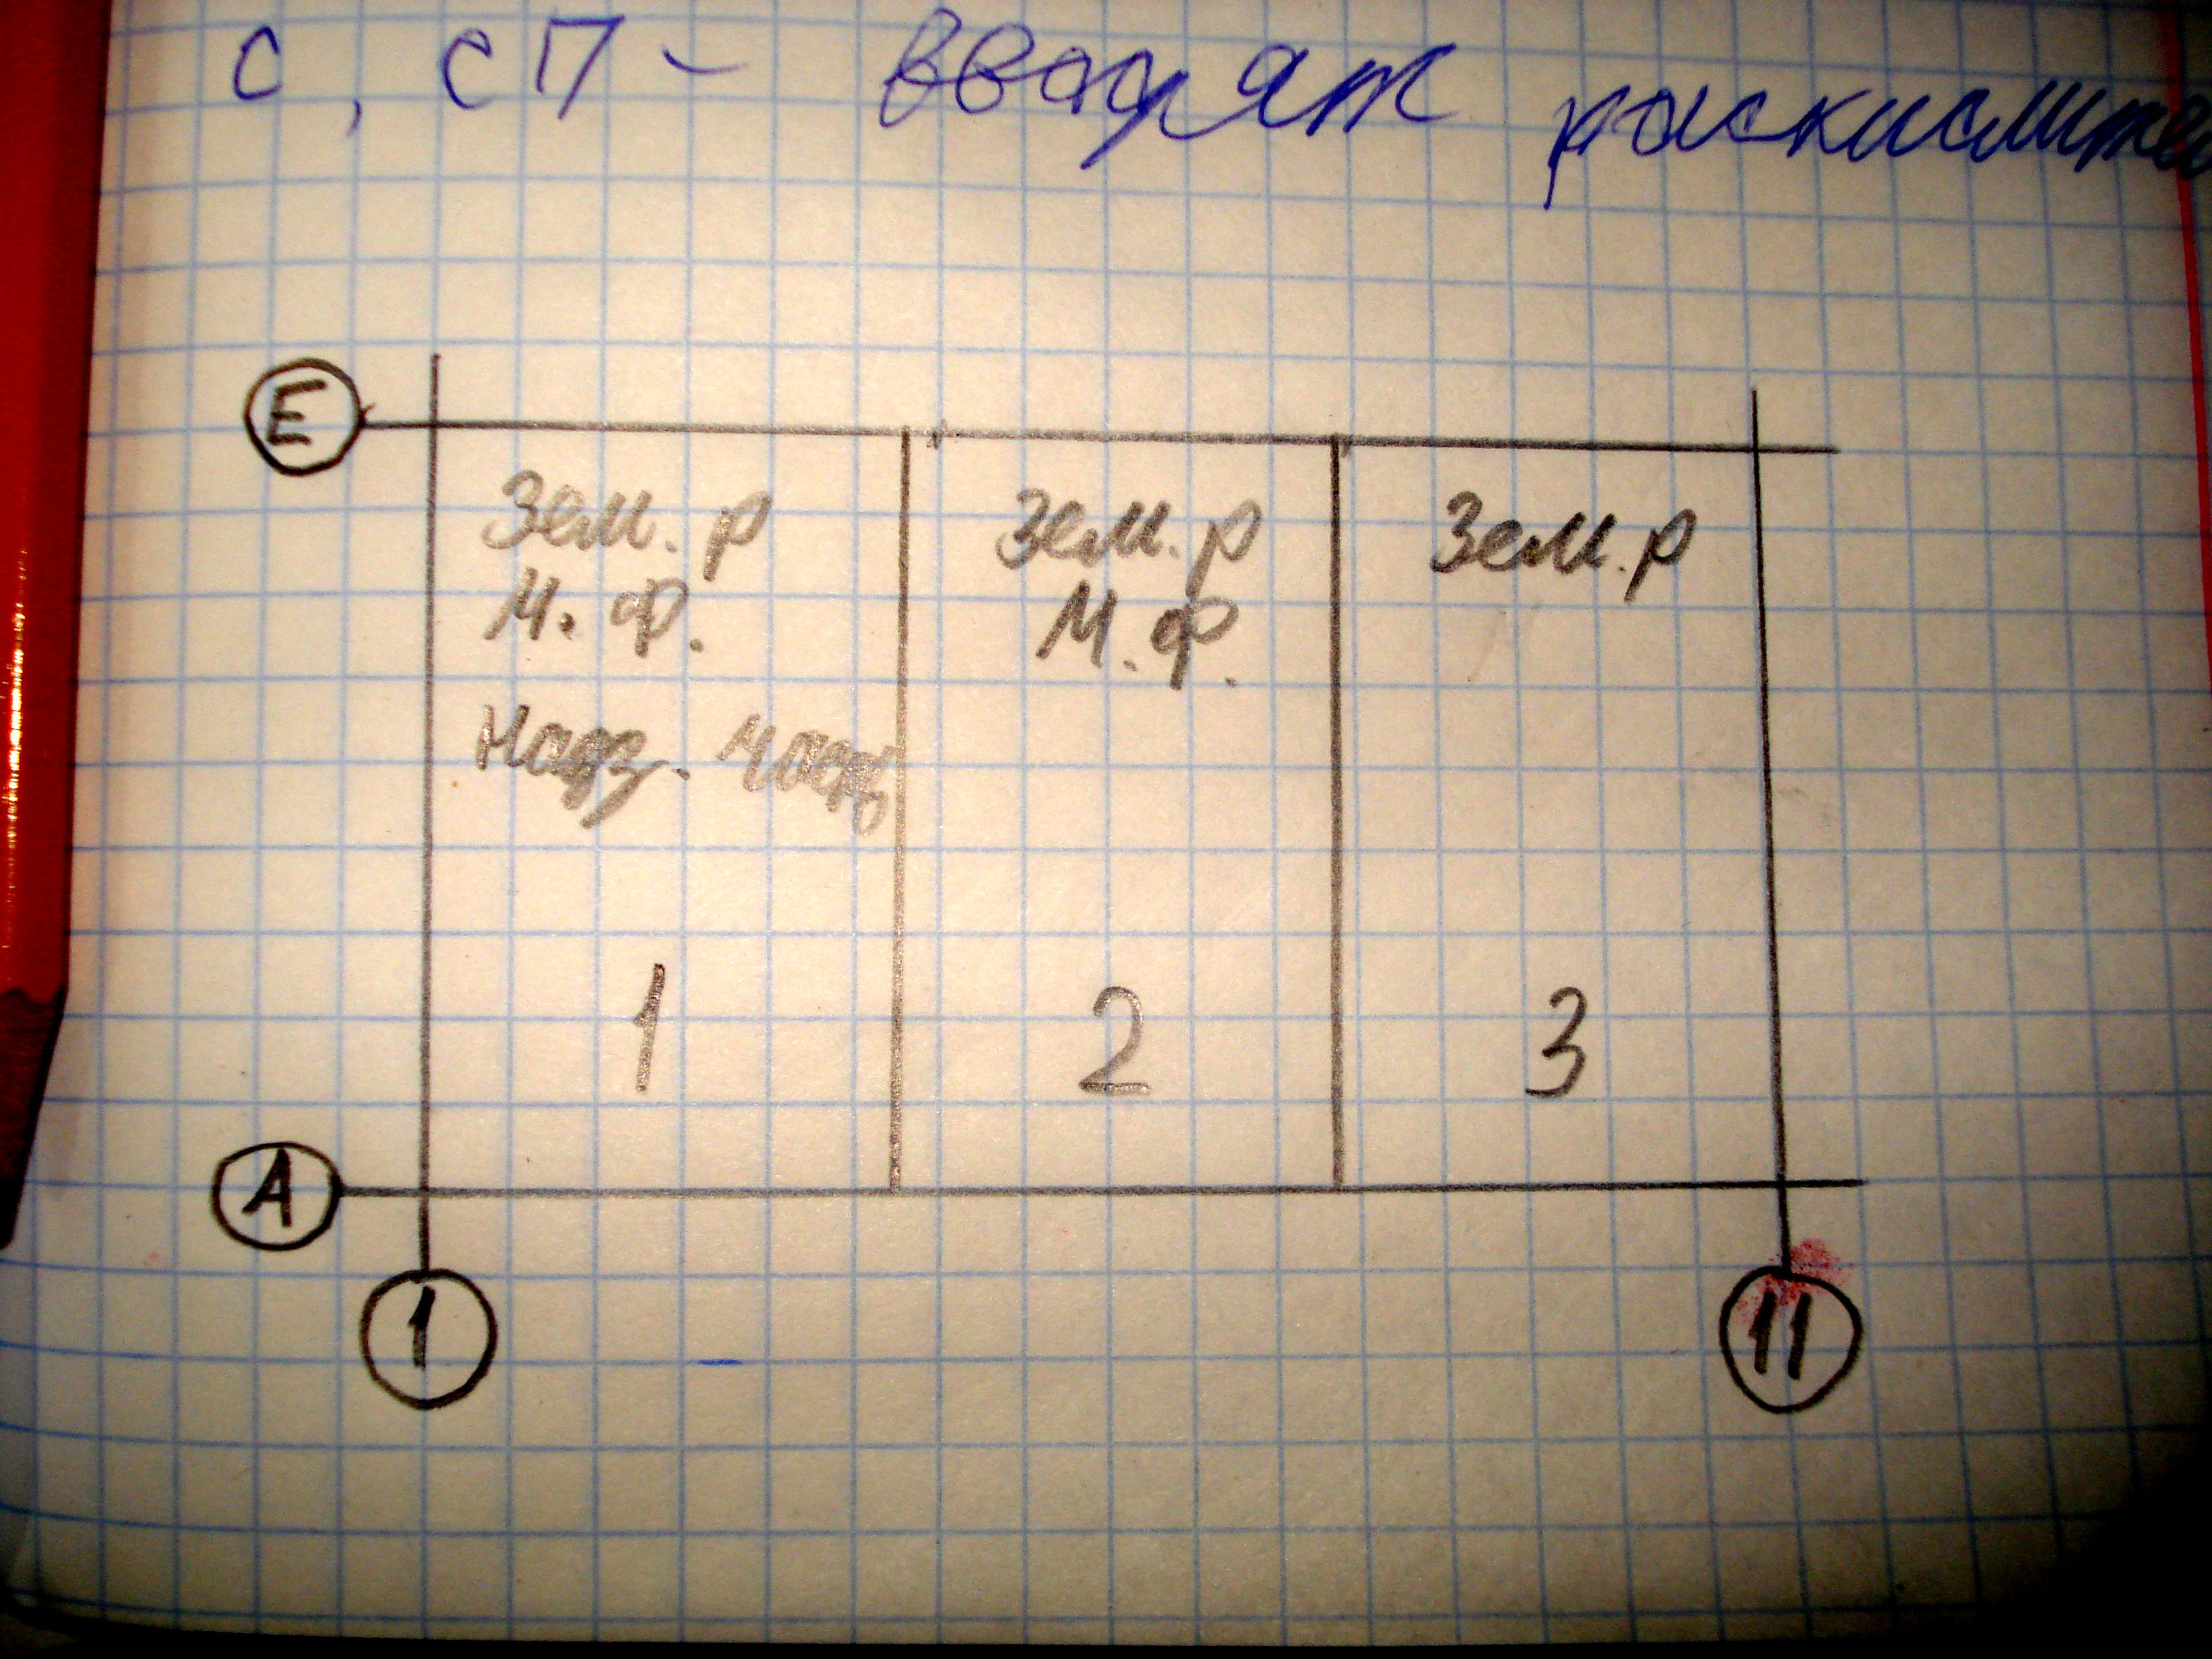 с, сп - вводят раскислите
Е
Зем. р Зем. р Зем. р
М. Ф. М. Ф.
Надз. часть
1 2 3
А
1 11